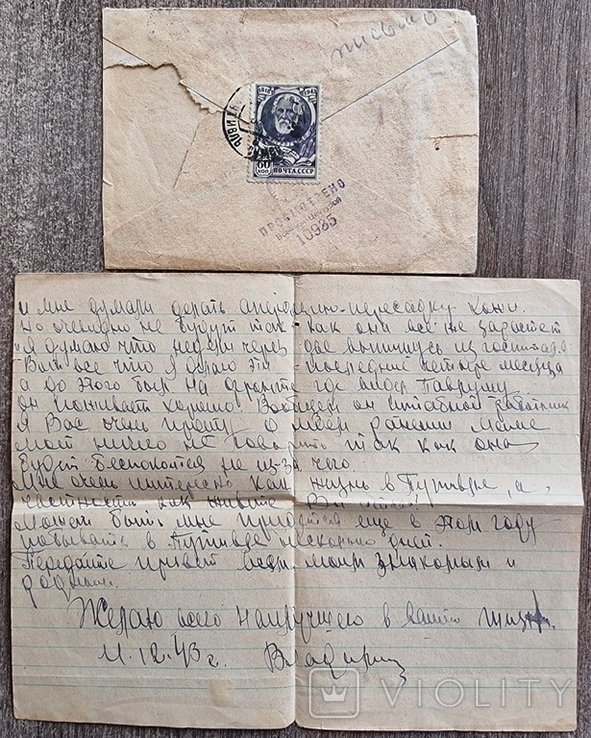 письмо
60 КОП
ПОЧТА СССР
ПРОСМОТРЕНО
Военной Цензурой
10985
и мне думали делать операцию-пересадку кожи.
Но очевидно не будут так как она все же зарастет
и я думаю что недели через две выпишусь из госпиталя
Вот все что я делаю эти последние четыре месяца
а до этого был на фронте где видел Гаврушу
он поживает хорошо. Вообщем он штабной работник
Я Вас очень прошу о моем ранении маме
моей ничего не говорить так как она
будет беспокоится не из-за чего.
Мне очень интересно как жизнь в Путивле, а,
в частности как живете Вы
Может быть мне придется еще в этом году
побывать в Путивле несколько дней.
Передайте привет всем моим знакомым и
родным.
Желаю всего наилучшего в Вашей жизни.
11.12.43 г. Владимир
VIOLITY